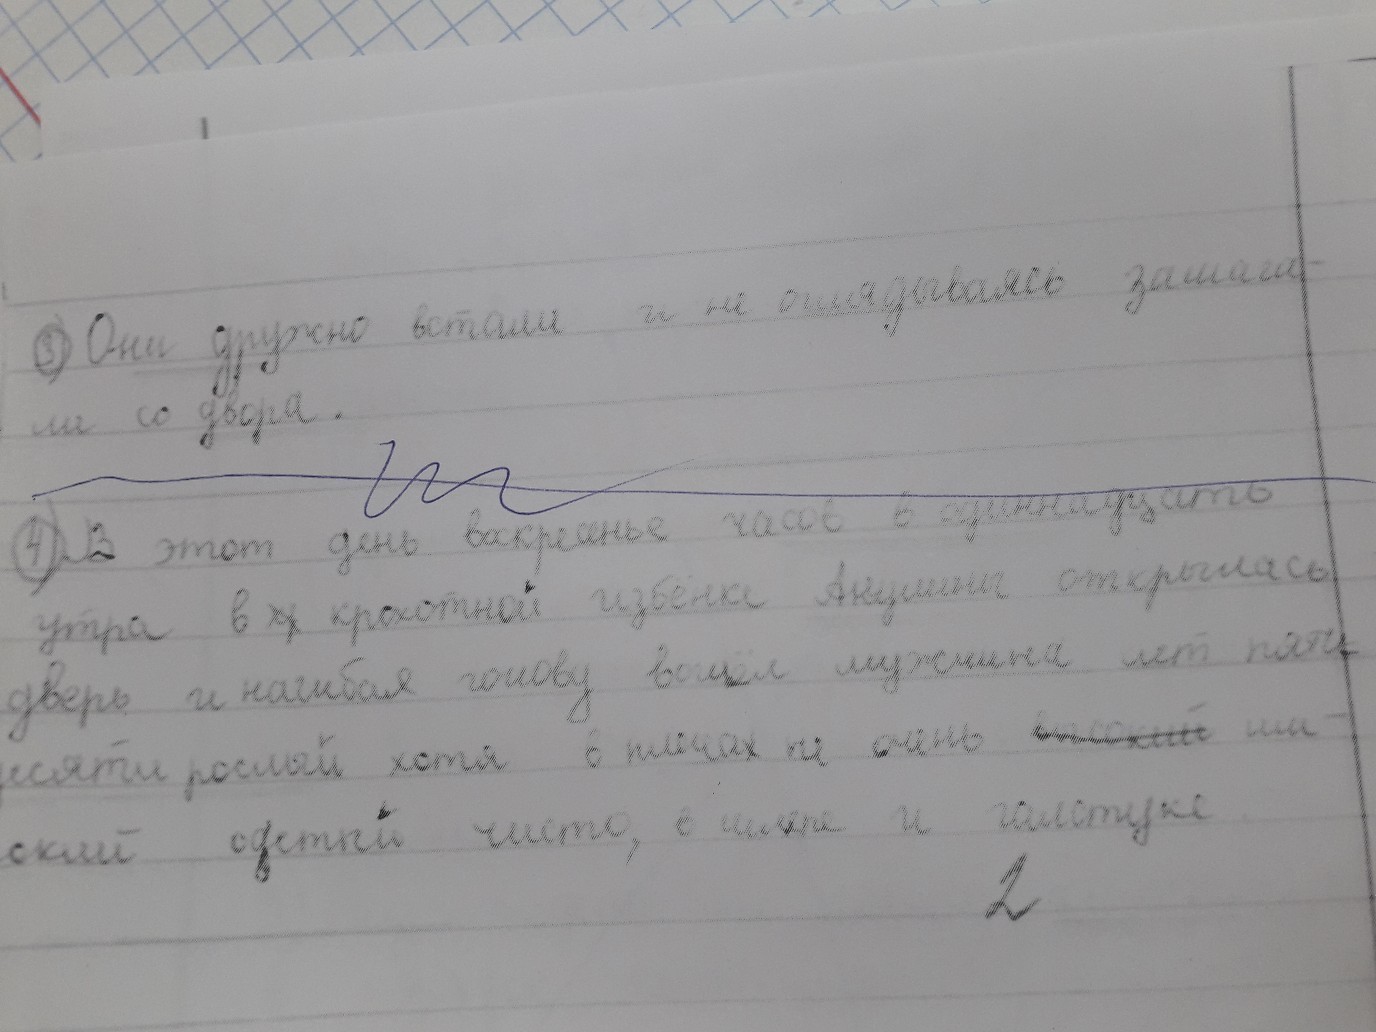 ③ Они дружно встали и не оглядываясь зашага-
ли со двора.
④ В этот день воскресенье часов в одиннадцать
утра в крохотной избёнке Акулины открылась
дверь и нагибая голову вошёл мужчина лет пяти
десяти рослый хотя в плечах не очень высокий
ский одетый чисто, в шляпе и галстуке
2